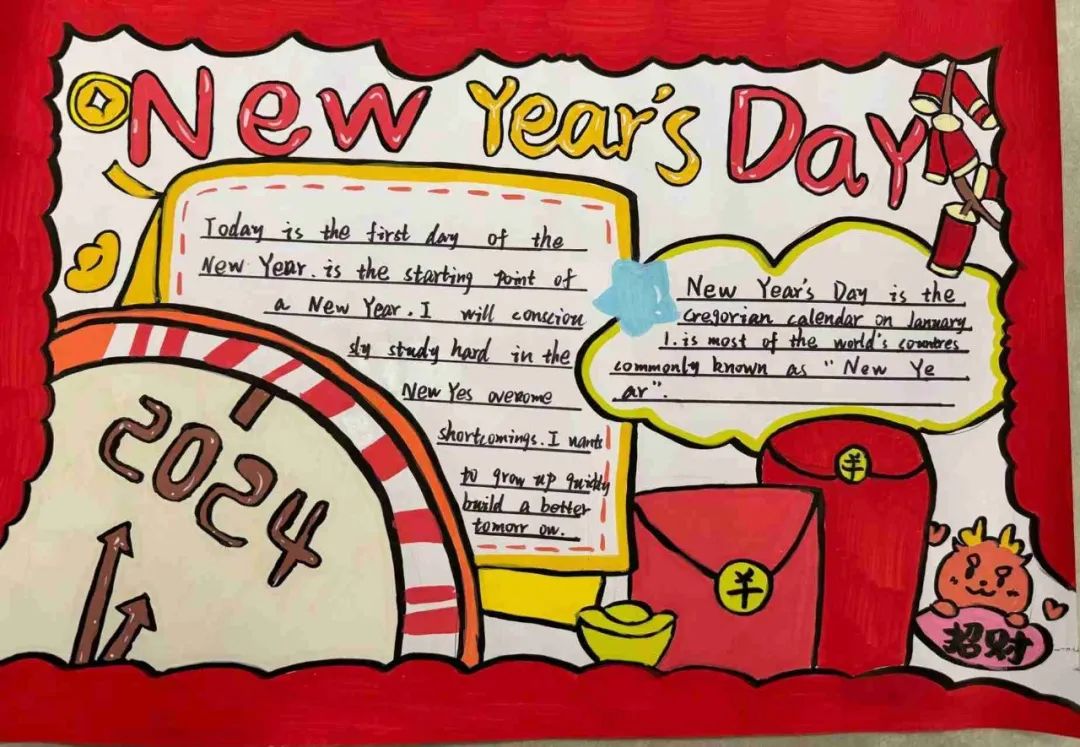 New Year's Day
Today is the first day of the
New Year. is the starting point of
a New Year. I will conscion
sly study hard in the
New Yes overome
shortcomings. I wants
to grow up quickly
build a better
tomorr ow.
New Year's Day is the
Gregorian calendar on January
1. is most of the world's countres
commonly known as "New Ye
ar".
2024
羊
羊
招财